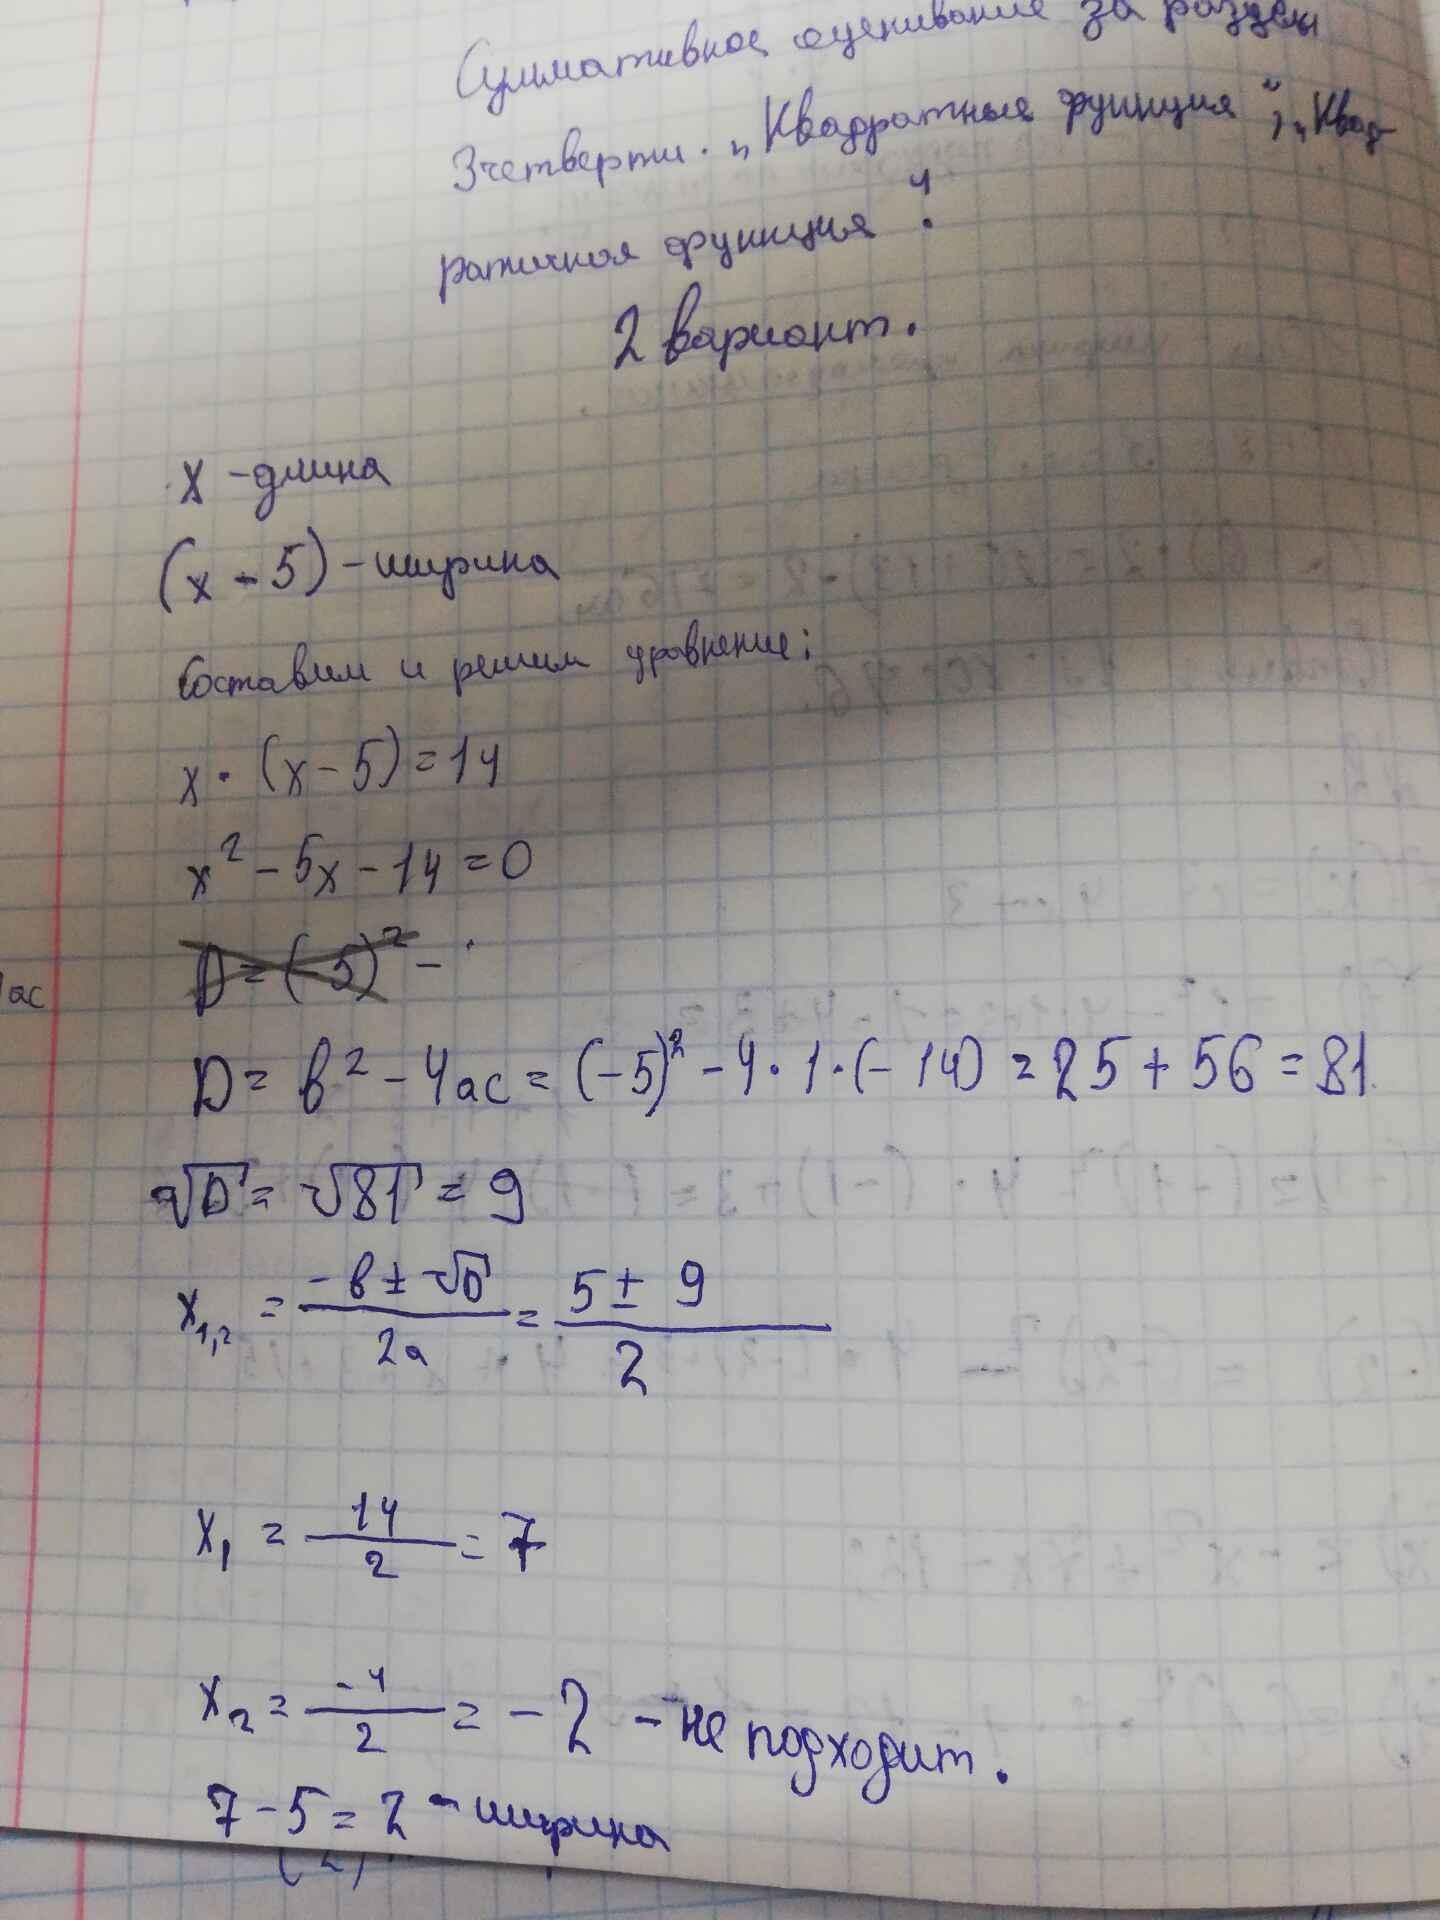 Суммативное оценивание за разделы
3четверти. "Квадратные функция", "Квад-
ратичная функция".
2 вариант.
x - длина
(x - 5) - ширина
Составим и решим уравнение:
x · (x - 5) = 14
x² - 5x - 14 = 0
D = (-5)² -
ac
D = b² - 4ac = (-5)² - 4 · 1 · (-14) = 25 + 56 = 81
√D = √81 = 9
x₁,₂ = (-b ± √D)/2a = (5 ± 9)/2
x₁ = 14/2 = 7
x₂ = -4/2 = -2 - не подходит.
7 - 5 = 2 - ширина